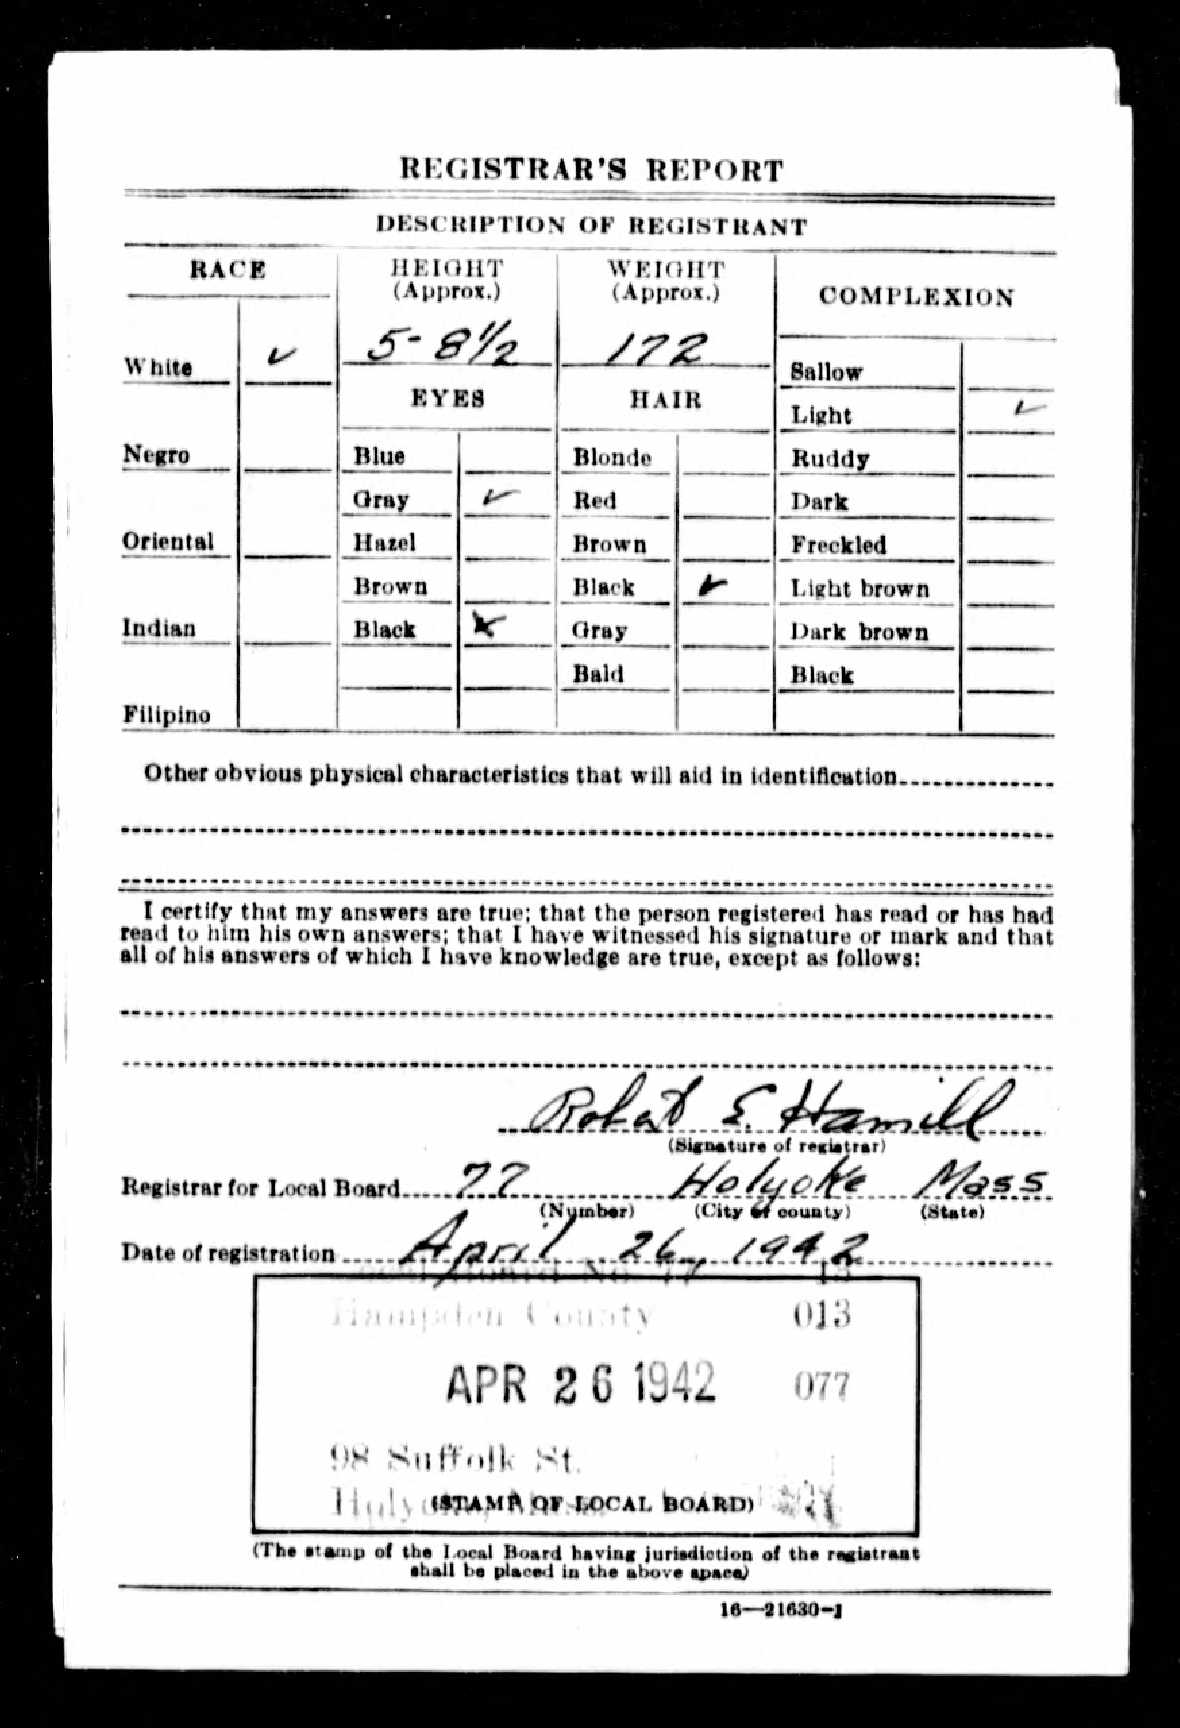 REGISTRAR'S REPORT
DESCRIPTION OF REGISTRANT
RACE
HEIGHT
(Approx.)
WEIGHT
(Approx.)
COMPLEXION
5-8½
172
White ✓
Sallow
EYES
HAIR
Light ✓
Negro
Blue
Blonde
Ruddy
Gray ✓
Red
Dark
Oriental
Hazel
Brown
Freckled
Brown
Black ✓
Light brown
Indian
Black
Gray
Dark brown
Bald
Black
Filipino
Other obvious physical characteristics that will aid in identification
I certify that my answers are true; that the person registered has read or has had
read to him his own answers; that I have witnessed his signature or mark and that
all of his answers of which I have knowledge are true, except as follows:
Robert E. Hamill
(Signature of registrar)
Registrar for Local Board 77 Holyoke Mass
(Number) (City or county) (State)
Date of registration April 26, 1942
Local Board No. 77 15
Hampden County 013
APR 26 1942 077
98 Suffolk St.
Holyoke, Mass.
(STAMP OF LOCAL BOARD)
(The stamp of the Local Board having jurisdiction of the registrant
shall be placed in the above space)
16—21630-1